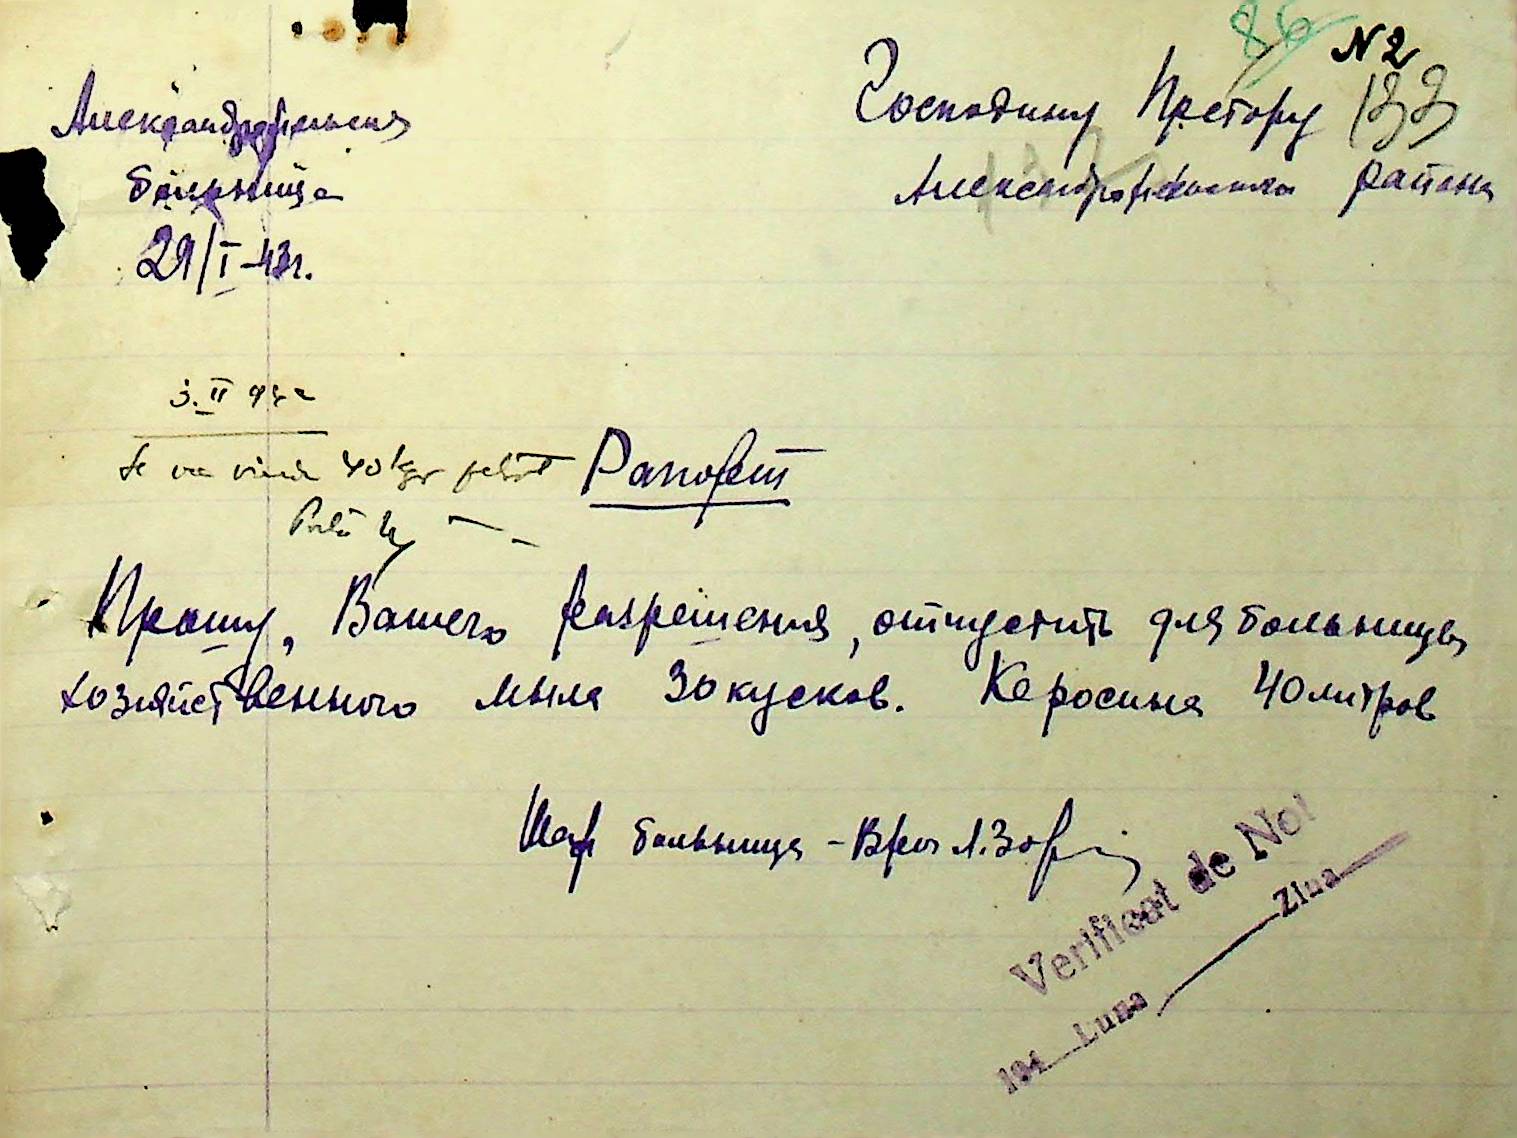 86 N 2
Александрофельская
больница
29/I-43г.
Господину Претору 133
Александрофельского района
3. II 943
Se va vinde 40 kgr petrol
Рапорт
Прошу, Вашего разрешения, отпустить для больницы
хозяйственного мыла 30 кусков. Керосина 40 литров
Шеф больницы - Врач Л.
Verificat de Noi
194 Luna Ziua